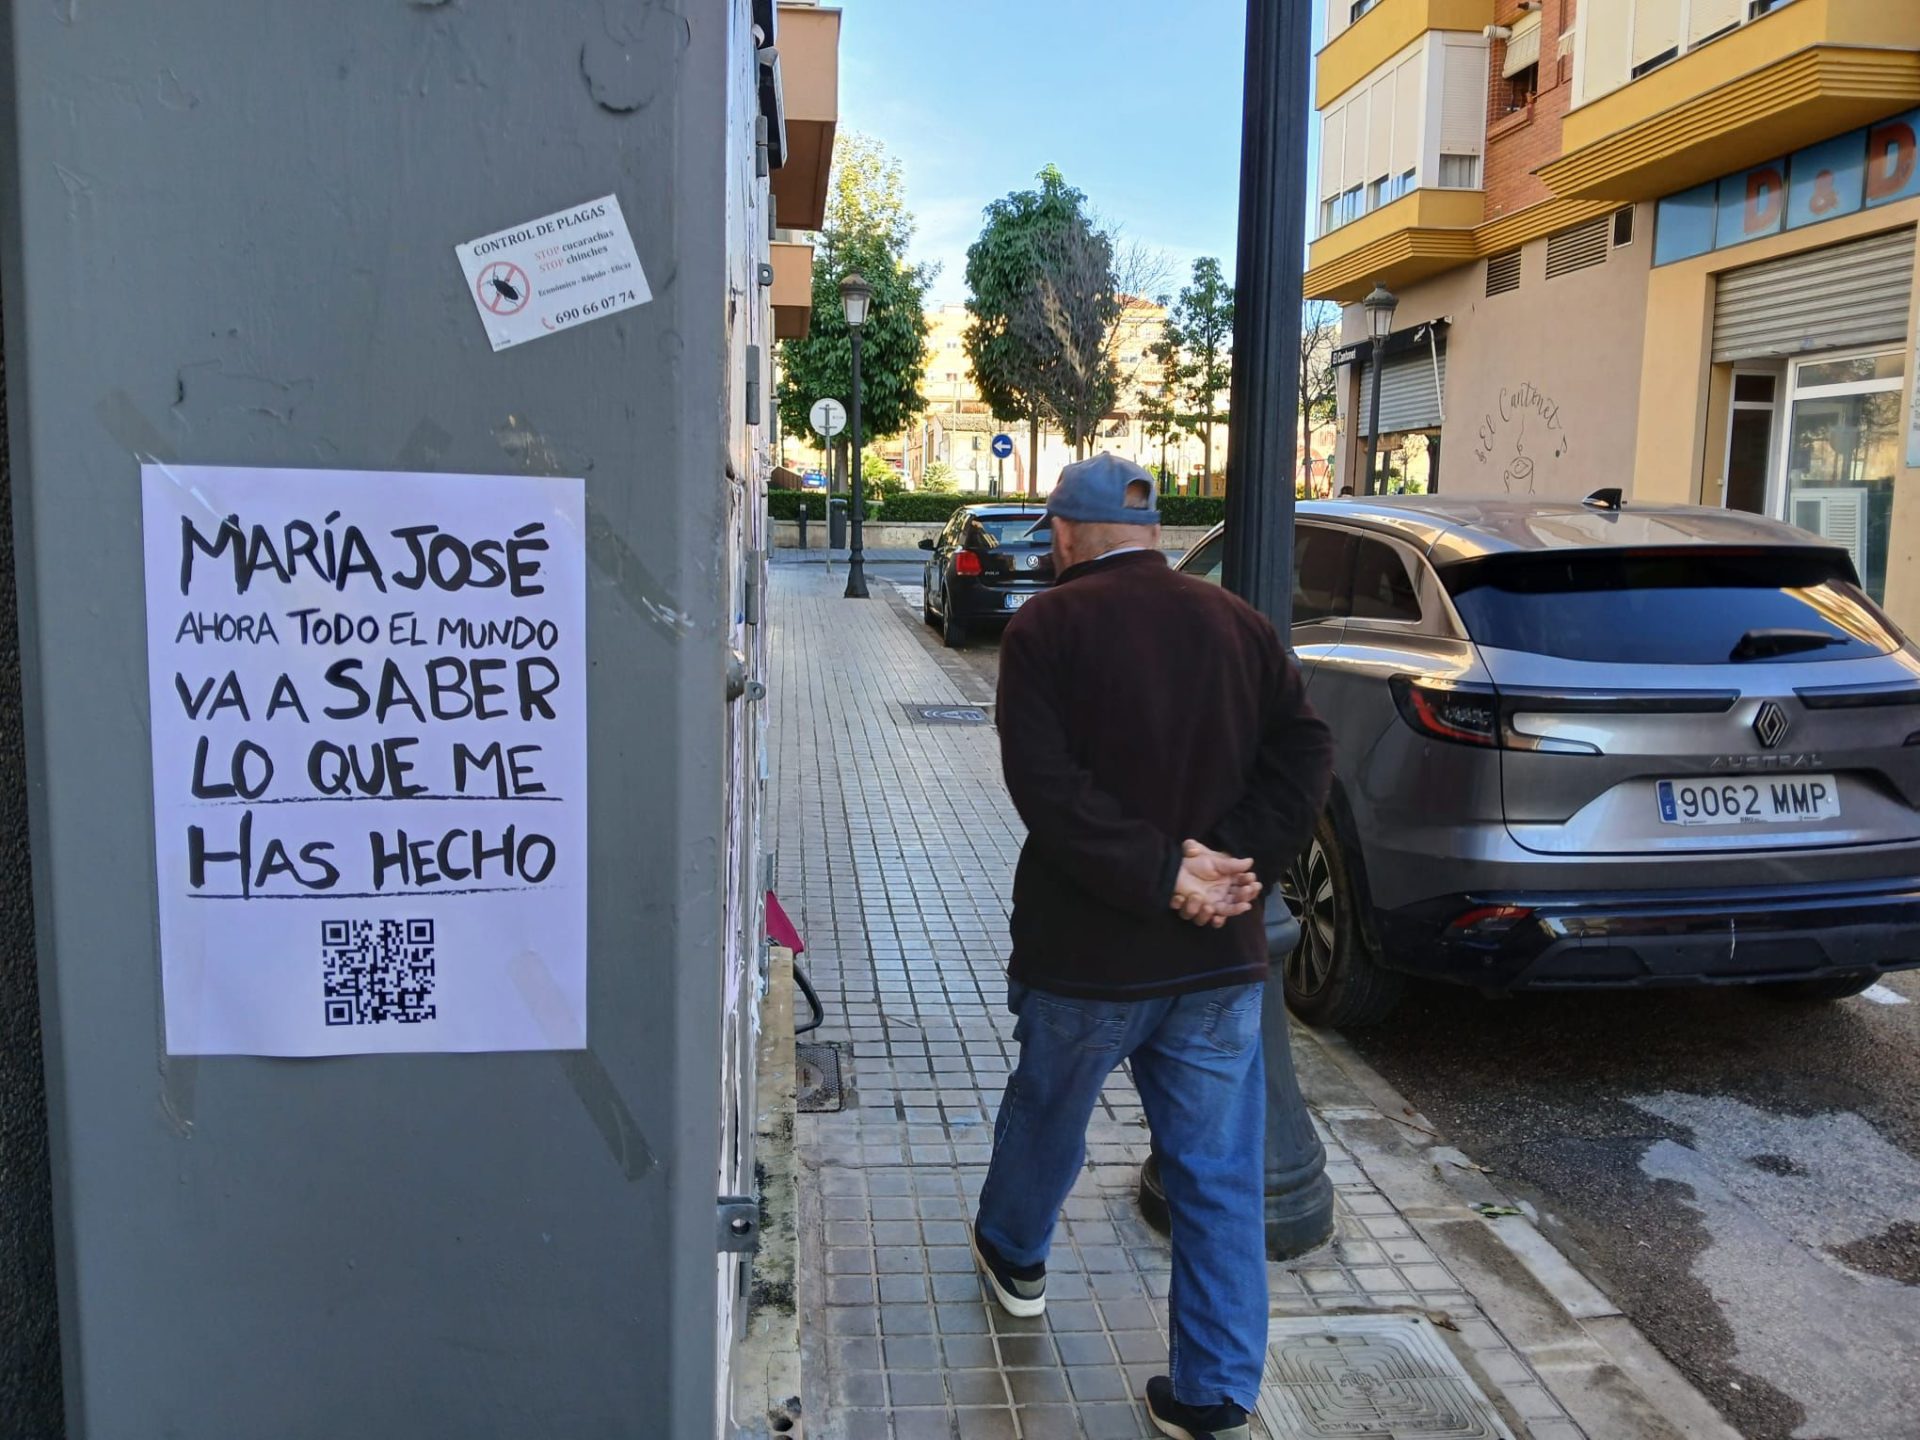 CONTROL DE PLAGAS
STOP cucarachas
STOP chinches
Económico - Rápido - Eficaz
690 66 07 74
MARÍA JOSÉ
AHORA TODO EL MUNDO
VA A SABER
LO QUE ME
HAS HECHO
D & D
El Cantonet
El Cantonet
POLO
AUSTRAL
E 9062 MMP